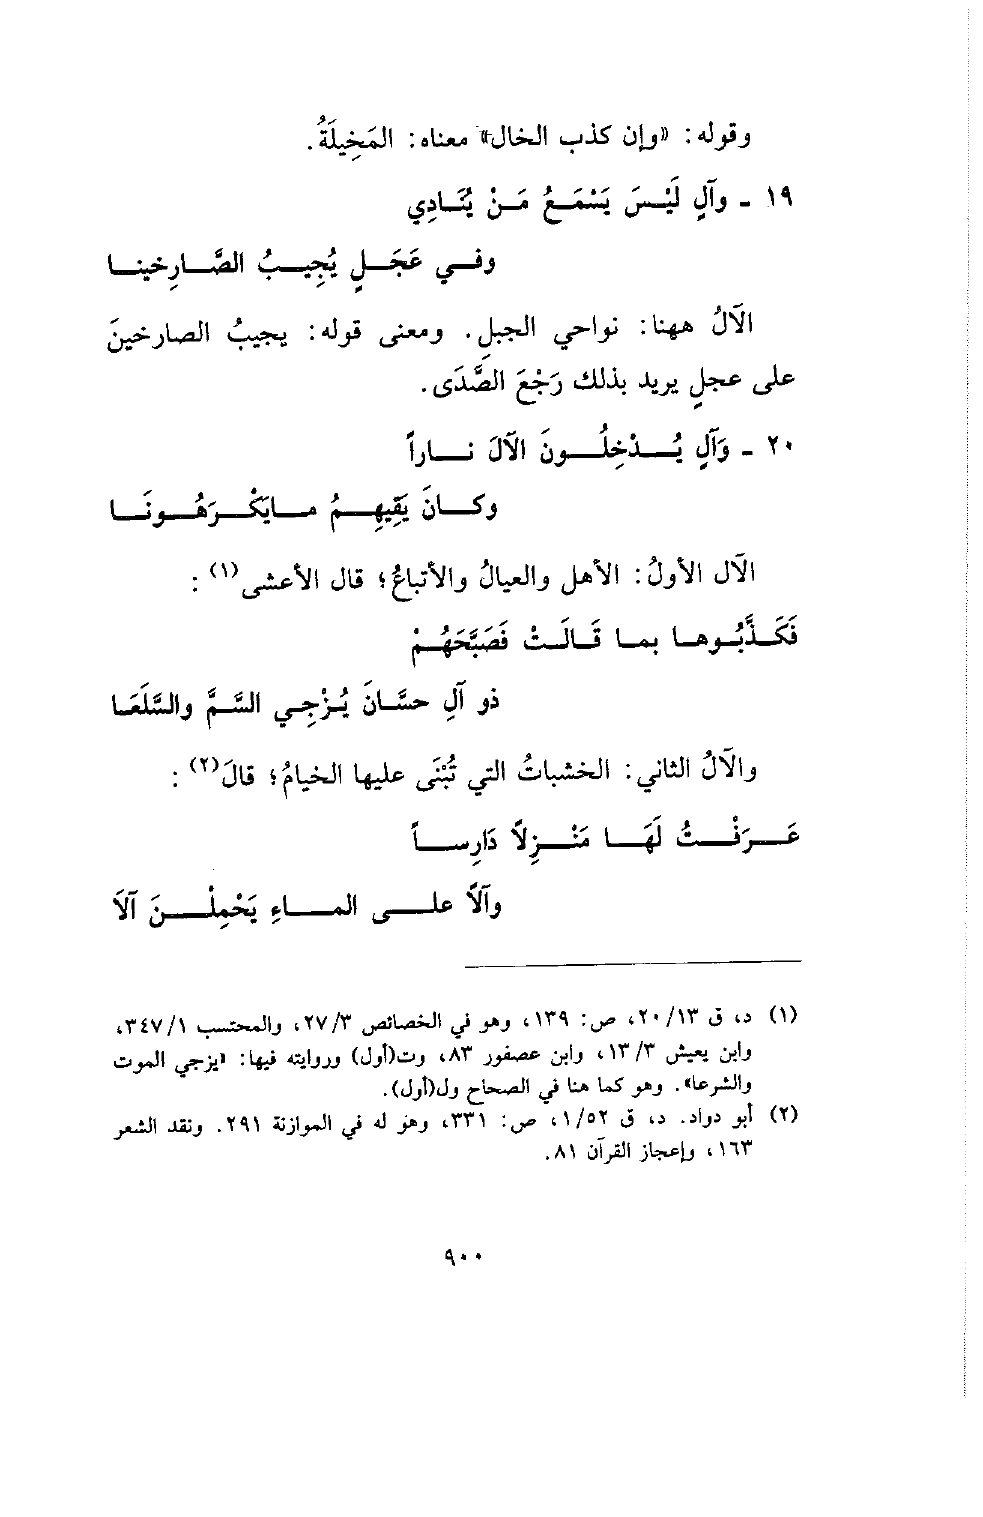 وقوله: «وإن كذب الخال» معناه: المَخِيلَةُ.
١٩ - وآلٍ لَيْسَ يَسْمَعُ مَنْ يُنَادِي
وفي عَجَلٍ يُجِيبُ الصَّارِخينا
الآلُ ههنا: نواحي الجبلِ. ومعنى قوله: يجيبُ الصارخينَ
على عجلٍ يريد بذلك رَجْعَ الصَّدَى.
٢٠ - وَآلٍ يُدْخِلُونَ الآلَ ناراً
وكانَ يَقِيهِمُ مايَكْرَهُونَا
الآل الأولُ: الأهل والعيالُ والأتباعُ؛ قال الأعشى(١):
فَكَذَّبُوها بما قَالَتْ فَصَبَّحَهُمْ
ذو آلِ حسَّانَ يُزْجِي السَّمَّ والسَّلَعَا
والآلُ الثاني: الخشباتُ التي تُبْنَى عليها الخيامُ؛ قالَ(٢):
عَرَفْتُ لَهَا مَنْزِلاً دَارِساً
وآلاً على الماءِ يَحْمِلْنَ آلاَ
(١) د، ق ٢٠/١٣، ص: ١٣٩، وهو في الخصائص ٢٧/٣، والمحتسب ٣٤٧/١،
وابن يعيش ١٣/٣، وابن عصفور ٨٣، وت(أول) وروايته فيها: «يزجي الموت
والشرعا». وهو كما هنا في الصحاح ول(أول).
(٢) أبو دواد. د، ق ١/٥٢، ص: ٣٣١، وهو له في الموازنة ٢٩١. ونقد الشعر
١٦٣، وإعجاز القرآن ٨١.
٩٠٠